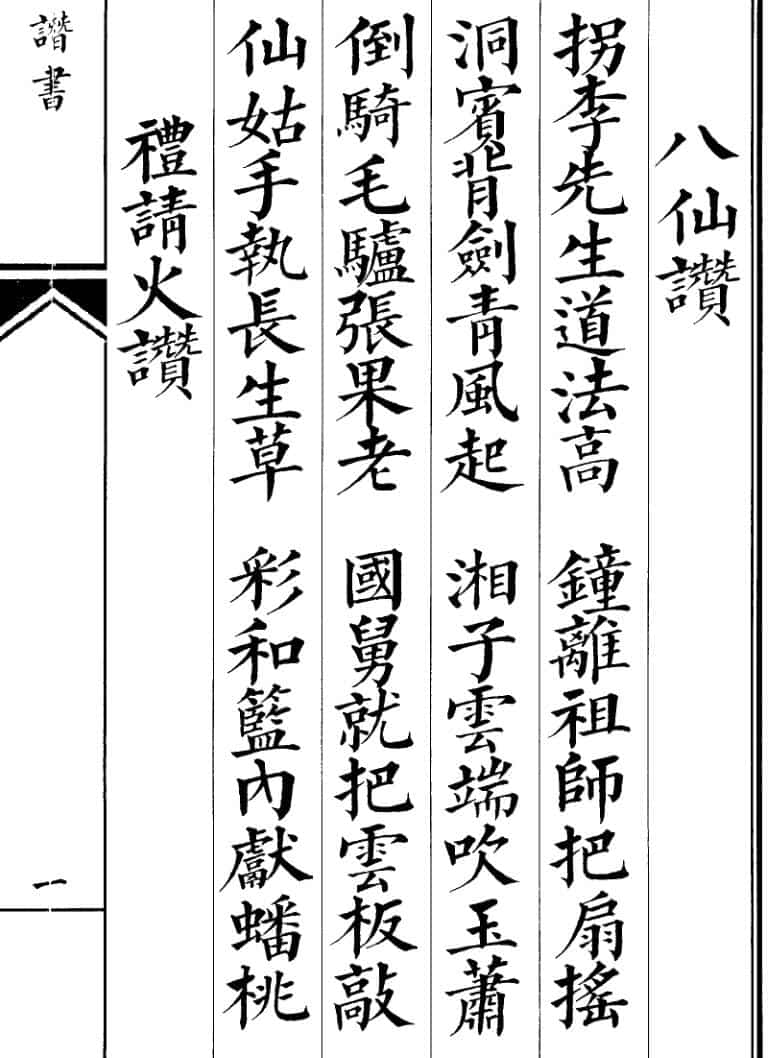 八仙讚
拐李先生道法高 鐘離祖師把扇搖
洞賓背劍青風起 湘子雲端吹玉蕭
倒騎毛驢張果老 國舅就把雲板敲
仙姑手執長生草 彩和籃內獻蟠桃
禮請火讚
讚書
一